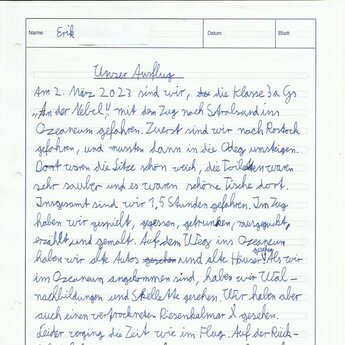 Name Erik Datum Blatt
Unser Ausflug
Am 2. März 2023 sind wir, die Klasse 3a Gs
„An der Nebel", mit den Zug nach Stralsund ins
Ozeaneum gefahren. Zuerst sind wir nach Rostock
gefahren, und mussten dann in die Odeg umsteigen.
Dort waren die Sitze schön weich, die Toiletten waren
sehr sauber und es waren schöne Tische dort.
Insgesamt sind wir 1,5 Stunden gefahren. Im Zug
haben wir gespielt, gegessen, getrunken, rausgeguckt,
erzählt und gemalt. Auf dem Weg ins Ozeaneum
haben wir alte Autos und alte Häuser gesehen. Als wir
im Ozeaneum angekommen sind, haben wir Wal-
nachbildungen und Skelette gesehen. Wir haben aber
auch einen verfrockneten Riesenkalmar gesehen.
Leider verging die Zeit wie im Flug. Auf der Rück-